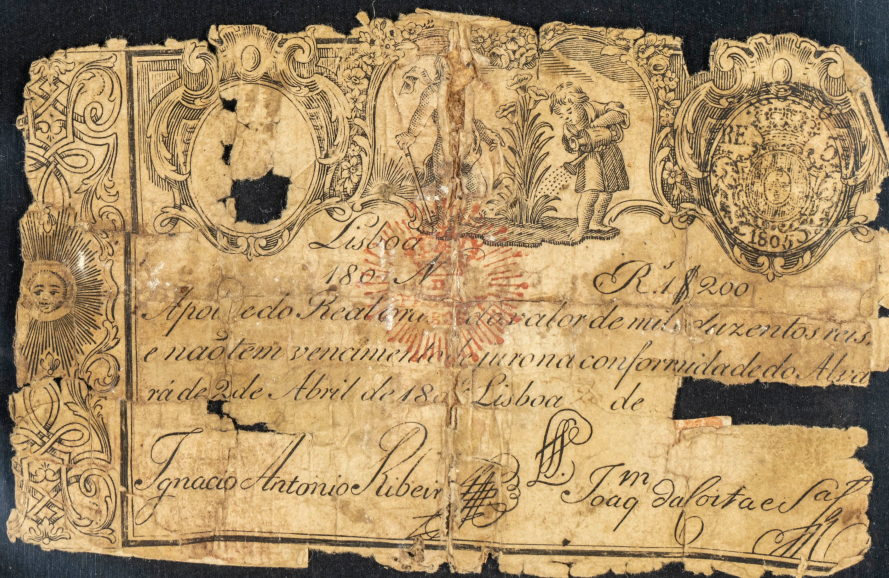 RE
1805
Lisboa
180 N R.ˢ 1$200
Apoi e do Real do valor de mil, duzentos reis.
e naõ tem vencimen juro na conformidade do Alva
rá de 2 de Abril de 180 Lisboa de
Ignacio Antonio Ribeir Joaqᵐ da Costa e Sᵃ